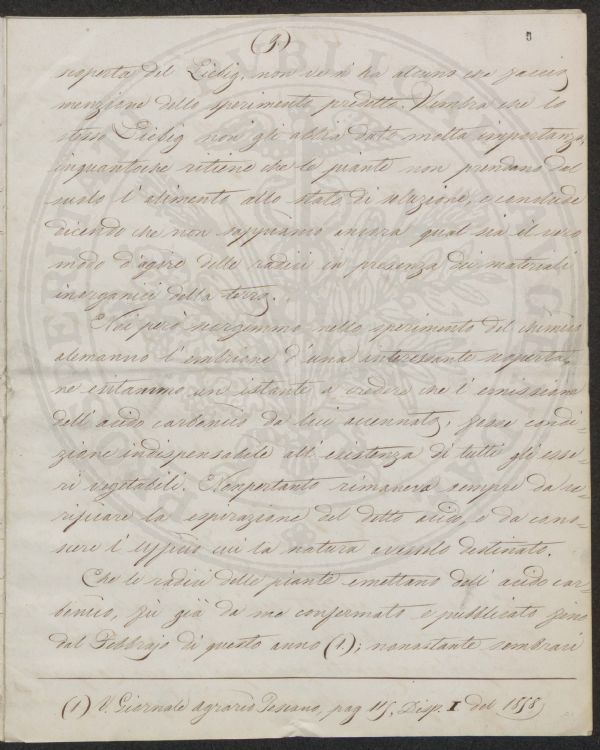 (9.)
5
scoperta del Liebig, non ve n'ha alcuno che faccia
menzione dello sperimento predetto. Sembra che lo
stesso Liebig non gli abbia dato molta importanza,
inquantoche ritiene che le piante non prendano dal
suolo l'alimento allo stato di soluzione, e conclude
dicendo che non sappiamo ancora qual sia il vero
modo d'agire delle radici in presenza dei materiali
inorganici della terra.
Noi però scorgemmo nello sperimento del chimico
alemanno l'embrione d'una interessante scoperta,
ne esitammo un istante a credere che l'emissione
dell'acido carbonico da lui accennata, fosse condi-
zione indispensabile all'esistenza di tutti gli esse-
ri vegetabili. Nonpertanto rimaneva sempre da ve-
rificare la espirazione del detto acido, e da cono-
scere l'ufficio cui la natura avesselo destinato.
Che le radici delle piante emettano dell'acido car-
bonico, fù già da me confermato e pubblicato fino
dal Febbrajo di questo anno (1.); nonostante sembrari
(1) V. Giornale agrario Toscano, pag 115, Disp. I del 1858